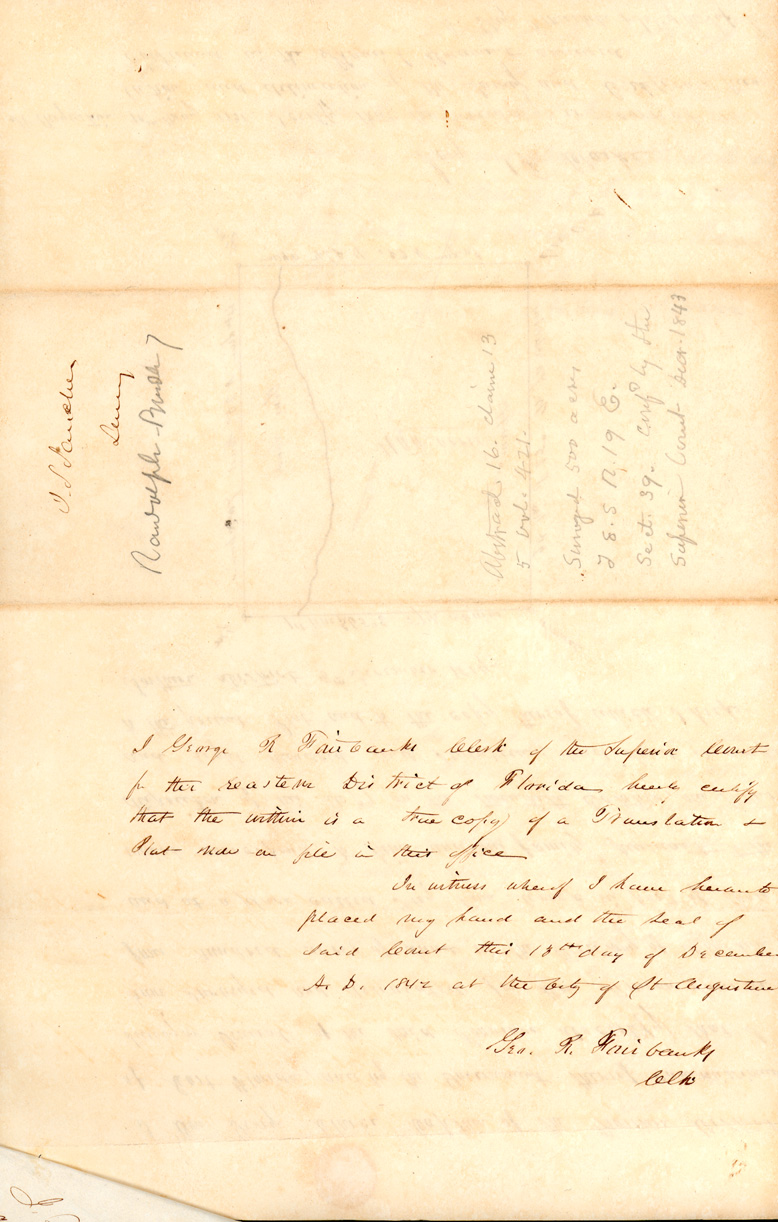 Randolph
Abstract 16. claim 13
5 vol. 421.
Survey'd 500 acres
T 8. S R. 19 E.
Sect. 39. Conf'd by the
Superior Court Decr. 1843
I George R Fairbanks Clerk of the Superior Court
for the Eastern District of Florida hereby certify
that the within is a true copy of a Translation &
Plat now on file in this office
In witness whereof I have hereunto
placed my hand and the seal of
said Court this 13th day of December
A. D. 1842 at the City of St Augustine
Geo. R. Fairbanks
Clk